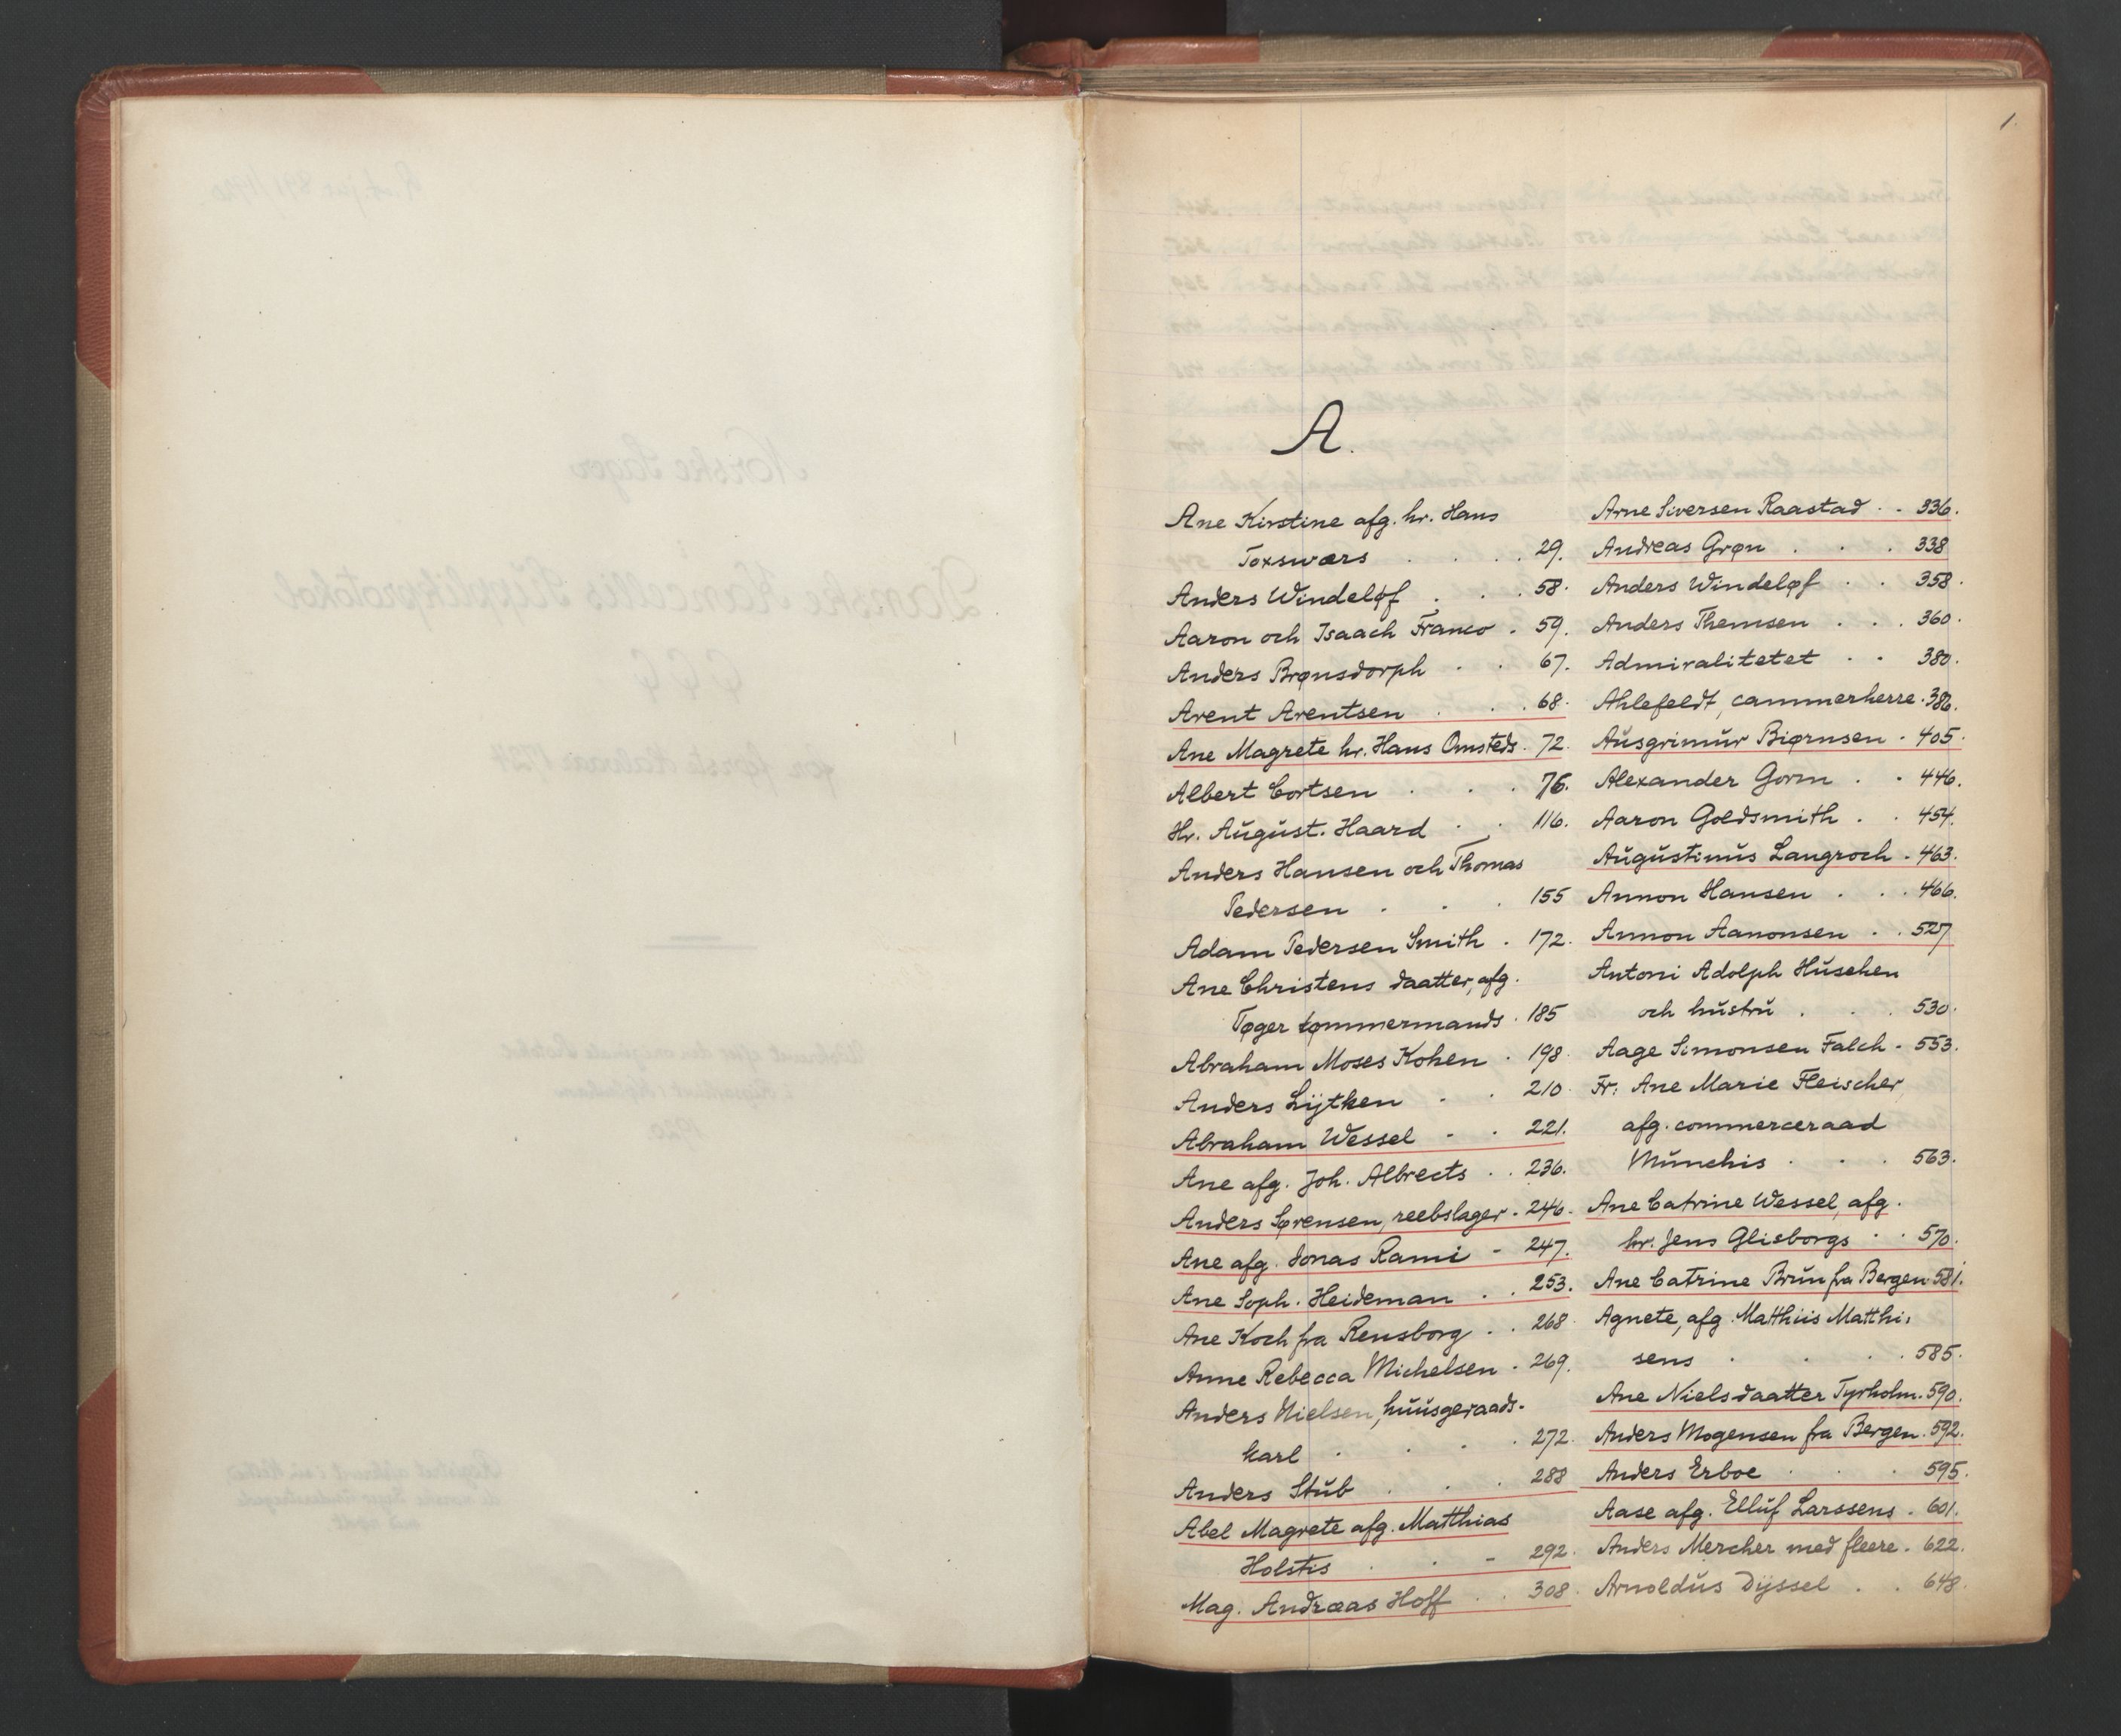 1.
A.
Ane Kirstine afg. hr. Hans
Toxswærs . . . . 29.
Anders Windeløf . . . 58.
Aaron och Isaach Franco . 59.
Anders Brønsdorph . . 67.
Arent Arentsen . . . 68.
Ane Magrete hr. Hans Omsteds . 72.
Albert Cortsen . . . 76.
Hr. August. Haard . . 116.
Anders Hansen och Thomas
Pedersen . . . 155
Adam Pedersen Smith . 172.
Ane Christens daatter, afg.
Tøger tømmermands . 185
Abraham Moses Kohen . 198.
Anders Lÿtken . . 210.
Abraham Wessel . . 221.
Ane afg. Joh. Albrects . . 236.
Anders Sørensen, reebslager . 246.
Ane afg. Jonas Rami - 247.
Ane Soph. Heideman . . 253.
Ane Koch fra Rensborg . . 268.
Anne Rebecca Michelsen . 269.
Anders Nielsen, huusgeraads-
karl . . . . 272.
Anders Stub . . . 288
Abel Magrete afg. Matthias
Holstis . . - 292.
Mag. Andræas Hoff . . 308.
Arne Siversen Raastad . . 336.
Andreas Grøn . . . 338
Anders Windeløf . . 358.
Anders Themsen . . . 360.
Admiralitetet . . 380.
Ahlefeldt, cammerherre . 386.
Ausgrimur Biørnsen . 405.
Alexander Gorm . . 446.
Aaron Goldsmith . . 454.
Augustinus Langroch . 463.
Annon Hansen . . . 466.
Annon Aanonsen . . 527
Antoni Adolph Husehen
och hustru . . . 530.
Aage Simonsen Falch . 553.
Fr: Ane Marie Fleischer,
afg. commerceraad
Munchis . . . 563.
Ane Catrine Wessel, afg.
hr. Jens Glisborgs . . 570.
Ane Catrine Brun fra Bergen 581.
Agnete, afg. Matthiis Matthi-
sens . . . . 585.
Ane Nielsdaatter Tyrholm . 590.
Anders Mogensen fra Bergen . 592.
Anders Erboe . . . 595.
Aase afg. Elluf Larssens . 601.
Anders Mercher med fleere . 622.
Arnoldus Dÿssel . . 648.